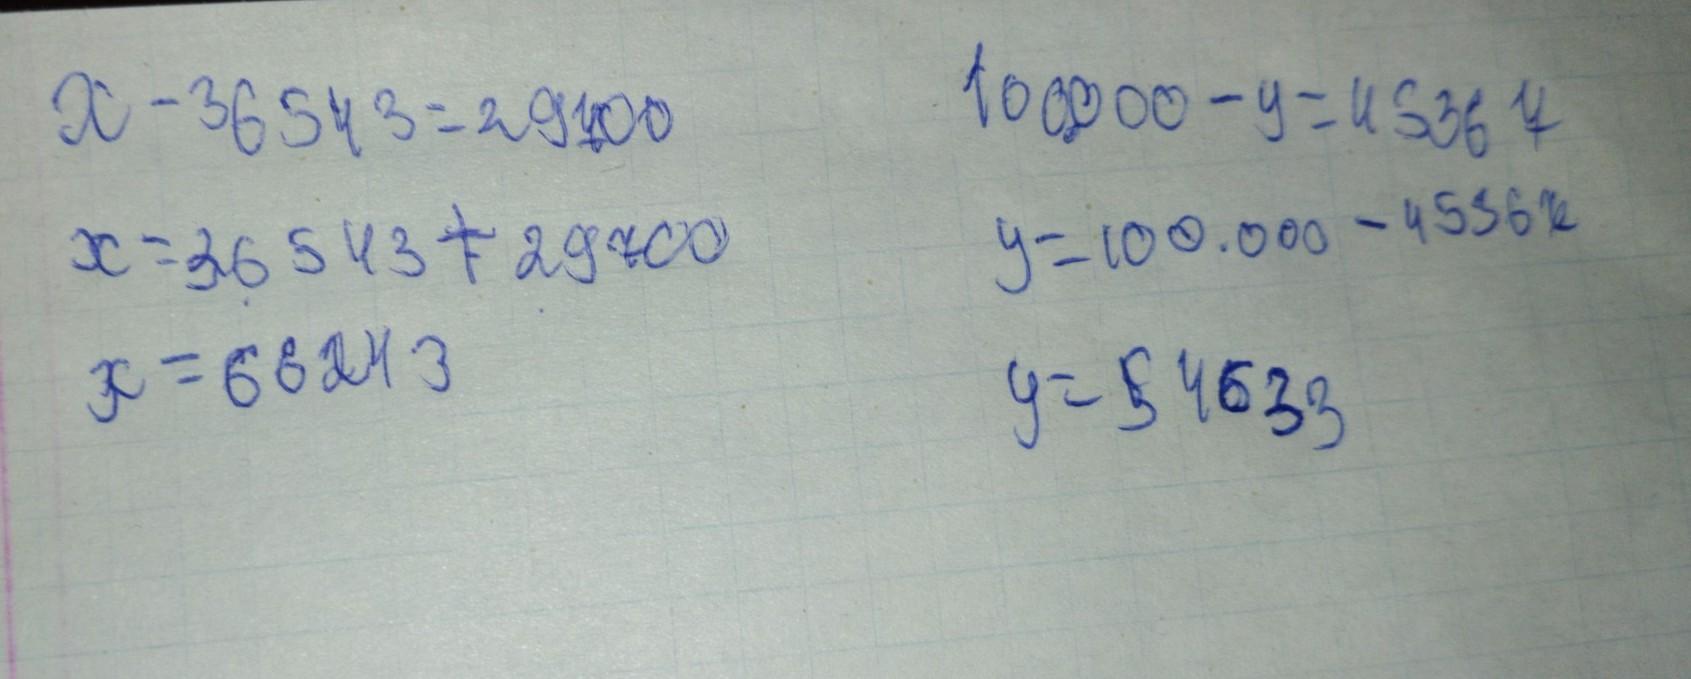 x - 36543 = 29700
x = 36543 + 29700
x = 66243
100000 - y = 45367
y = 100.000 - 45367
y = 54633